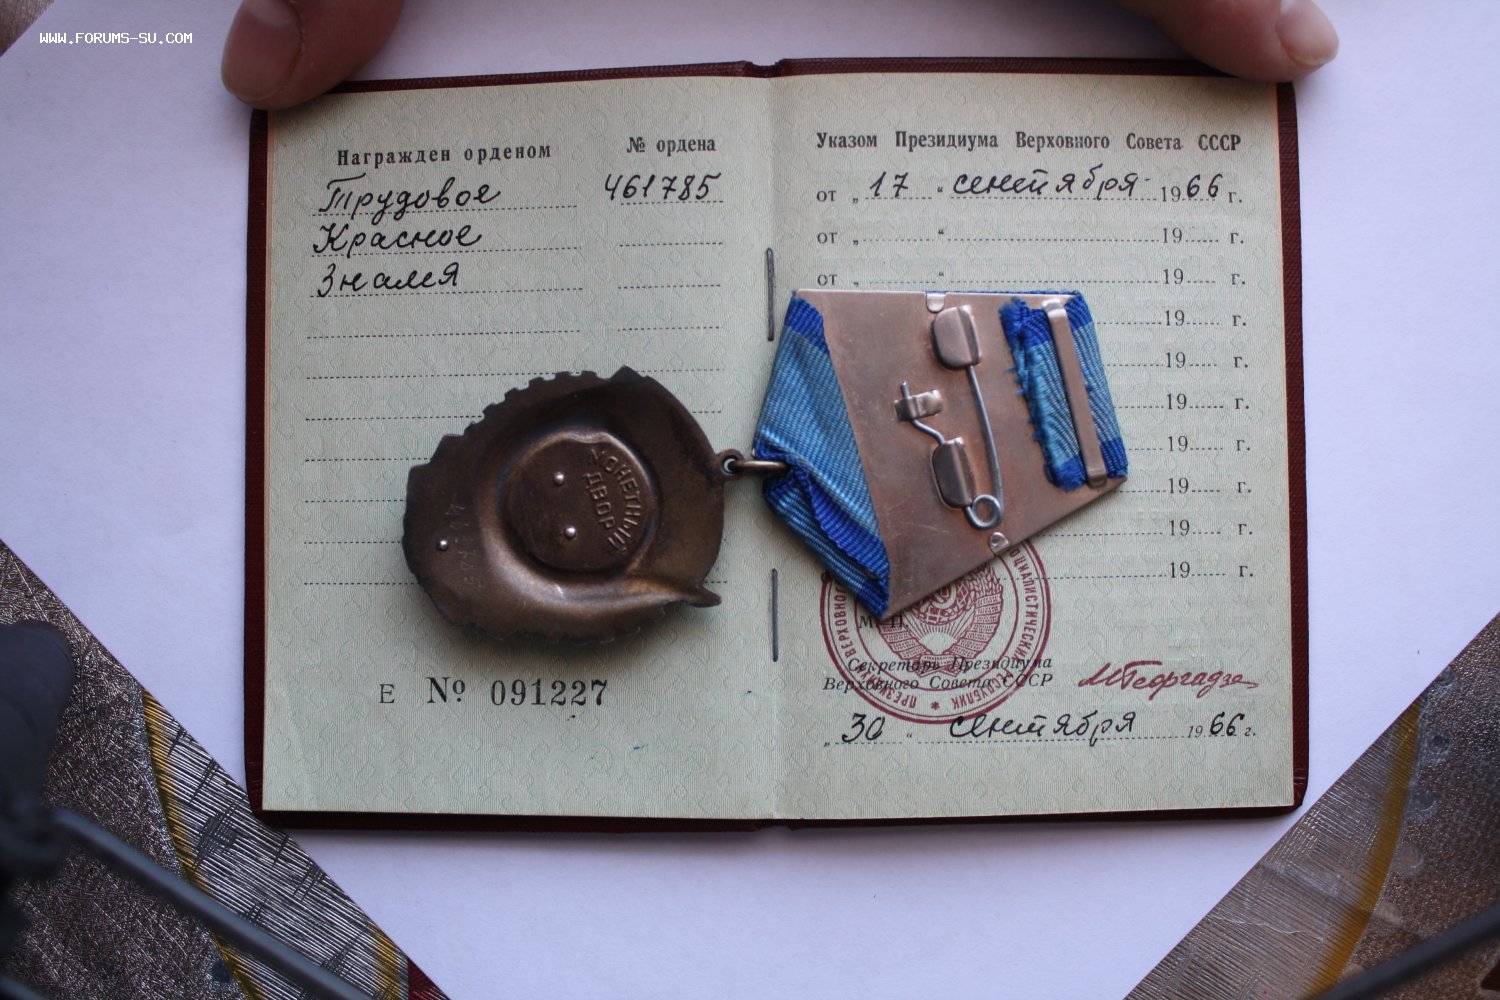 WWW.FORUMS-SU.COM
Награжден орденом № ордена
Трудовое 461785
Красное
Знамя
МОНЕТНЫЙ
ДВОР
Е № 091227
Указом Президиума Верховного Совета СССР
от „ 17 “ сентября 1966 г.
от „ “ 19 г.
от „ “ 19 г.
19 г.
19 г.
19 г.
19 г.
19 г.
19 г.
19 г.
М. П.
Секретарь Президиума
Верховного Совета СССР
МГеоргадзе
„ 30 “ сентября 1966 г.